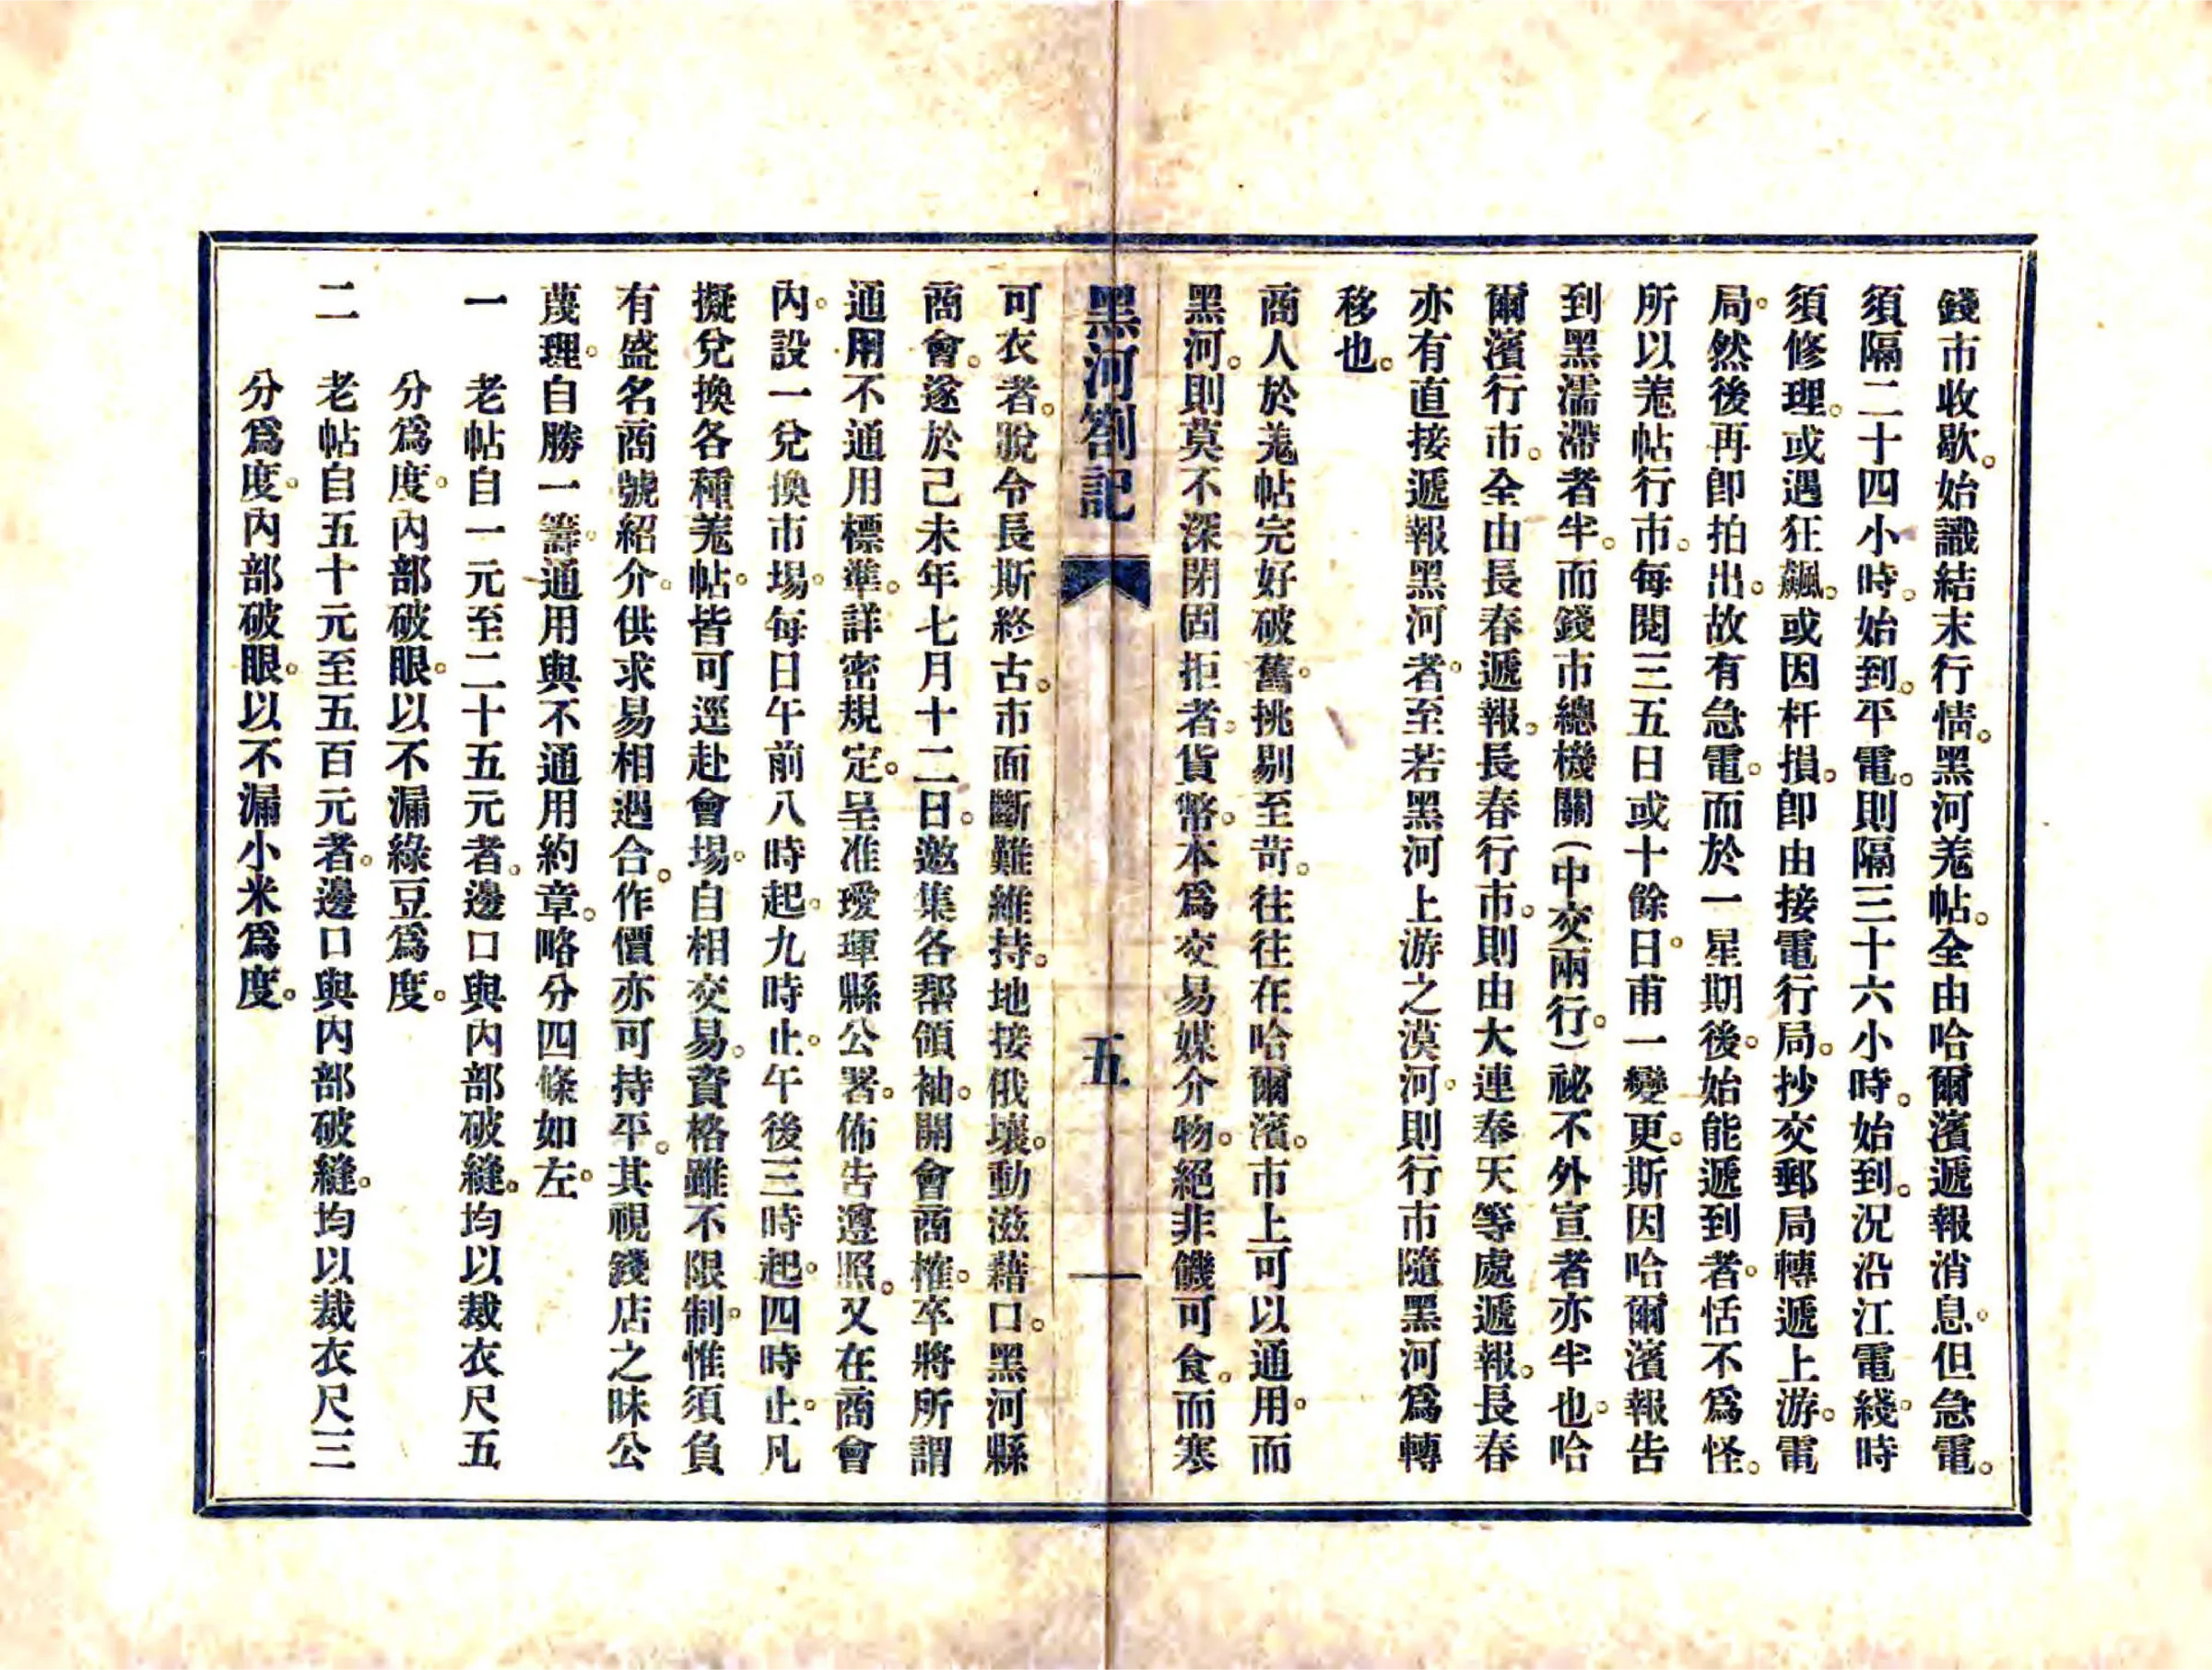 錢市收歇。始識結末行情。黑河羗帖。全由哈爾濱遞報消息。但急電。
須隔二十四小時。始到。平電。則隔三十六小時。始到。況沿江電綫。時
須修理。或遇狂飆。或因杆損。卽由接電行局。抄交郵局轉遞上游。電
局。然後再卽拍出。故有急電。而於一星期後。始能遞到者。恬不爲怪。
所以羗帖行市。每閱三五日或十餘日。甫一變更。斯因哈爾濱報告
到黑濡滯者半。而錢市總機關(中交兩行。)祕不外宣者亦半也。哈
爾濱行市。全由長春遞報。長春行市。則由大連奉天等處遞報。長春
亦有直接遞報黑河者。至若黑河上游之漠河。則行市隨黑河爲轉
移也。
商人於羗帖完好破舊。挑剔至苛。往往在哈爾濱。市上可以通用。而
黑河。則莫不深閉固拒者。貨幣。本爲交易媒介物。絕非饑可食。而寒
黑河劄記
五
可衣者。脫令長斯終古。市面斷難維持。地接俄壤。動滋藉口。黑河縣
商會。遂於己未年七月十二日。邀集各幇領袖。開會商榷。卒將所謂
通用不通用標準。詳密規定。呈准璦琿縣公署。佈告遵照。又在商會
內。設一兌換市場。每日午前八時起。九時止。午後三時起。四時止。凡
擬兌換各種羗帖。皆可逕赴會場。自相交易。資格雖不限制。惟須負
有盛名商號紹介。供求易相遇合。作價亦可持平。其視錢店之昧公
蔑理。自勝一籌。通用與不通用約章。略分四條如左。
一 老帖自一元至二十五元者。邊口與內部破縫。均以裁衣尺五
分爲度。內部破眼。以不漏綠豆爲度。
二 老帖自五十元至五百元者。邊口與內部破縫。均以裁衣尺三
分爲度。內部破眼。以不漏小米爲度。